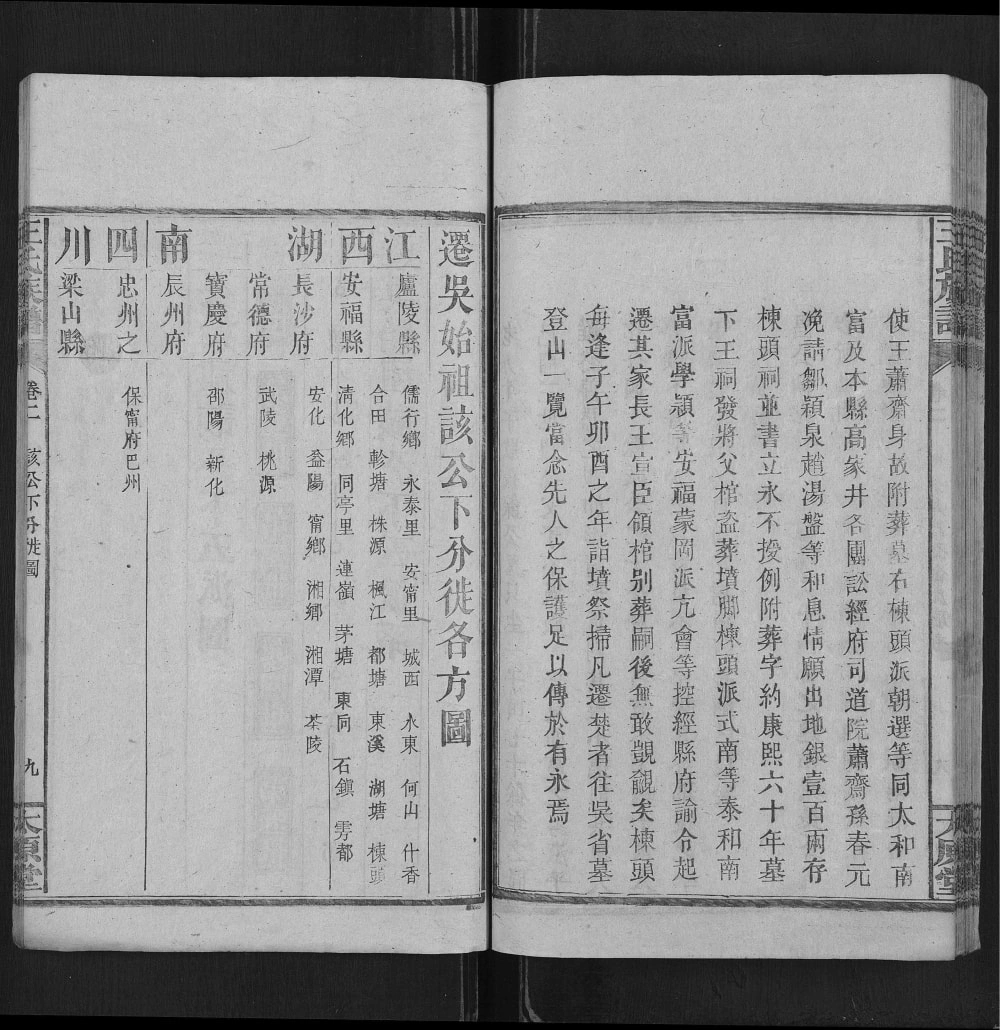 王氏族譜
太原堂
使王蕭齋身故附葬墓右棟頭派朝選等同太和南
富及本縣高家井各團訟經府司道院蕭齋孫春元
浼請鄒穎泉趙湯盤等和息情願出地銀壹百兩存
棟頭祠並書立永不援例附葬字約康熙六十年墓
下王祠發將父棺盜葬墳脚棟頭派式南等泰和南
富派學穎等安福蒙岡派亢會等控經縣府諭令起
遷其家長王宣臣領棺别葬嗣後無敢覬覦矣棟頭
每逢子午卯酉之年詣墳祭掃凡遷楚者往吳省墓
登山一覽當念先人之保護足以傳於有永焉
遷吳始祖該公下分徙各方圖
江西
廬陵縣
儒行鄉 永泰里 安甯里 城西 永東 何山 什香
合田 軫塘 株源 楓江 都塘 東溪 湖塘 棟頭
安福縣
清化鄉 同亭里 連嶺 茅塘 東向 石鎮 雩都
湖南
長沙府
安化 益陽 甯鄉 湘鄉 湘潭 茶陵
常德府
武陵 桃源
寶慶府
邵陽 新化
辰州府
四川
忠州之
保甯府巴州
梁山縣
王氏族譜
卷二 該公下分徙圖
九
太原堂